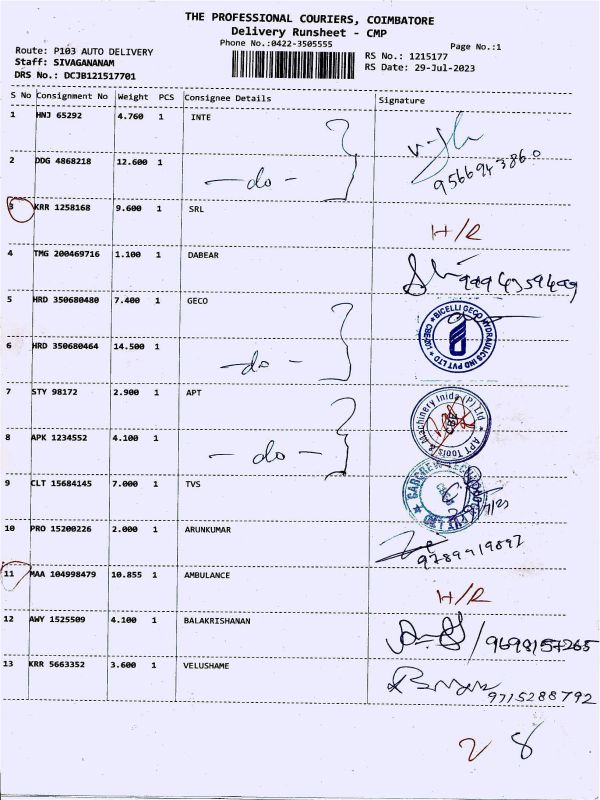 THE PROFESSIONAL COURIERS, COIMBATORE
Delivery Runsheet - CMP
Phone No.:0422-3505555
Page No.:1
Route: P103 AUTO DELIVERY
Staff: SIVAGANANAM
DRS No.: DCJB121517701
RS No.: 1215177
RS Date: 29-Jul-2023
S No Consignment No Weight PCS Consignee Details Signature
1 HNJ 65292 4.760 1 INTE
2 DDG 4868218 12.600 1 -do-
3 KRR 1258168 9.600 1 SRL H/R
4 TMG 200469716 1.100 1 DABEAR
5 HRD 350680480 7.400 1 GECO
BICELLI GECO HYDRAULICS IND PVT LTD
6 HRD 350680464 14.500 1 -do-
7 STY 98172 2.900 1 APT
APT Tools & Machinery Inida (P) Ltd
8 APK 1234552 4.100 1 -do-
9 CLT 15684145 7.000 1 TVS
10 PRO 15200226 2.000 1 ARUNKUMAR
11 MAA 104998479 10.855 1 AMBULANCE H/R
12 AWY 1525509 4.100 1 BALAKRISHANAN /9698157265
13 KRR 5663352 3.600 1 VELUSHAME 9715288792
2 8